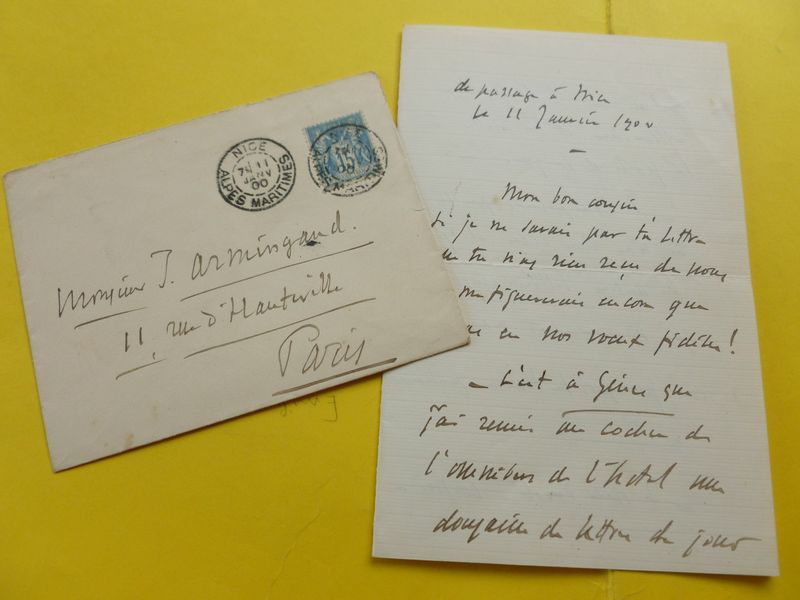 NICE
7E 11
JANV
00
ALPES MARITIMES
NICE
15
00
Monsieur J. Armingaud.
11, rue d'Hauteville
Paris
de passage à Nice
le 11 Janvier 1900
Mon bon cousin
si je ne savais par ta lettre
que tu n'as rien reçu de nous
figurerais encore que
en nos vœux fidèles!
– C'est à Gênes que
j'ai remis au cocher de
l'omnibus de l'hotel une
douzaine de lettres du jour